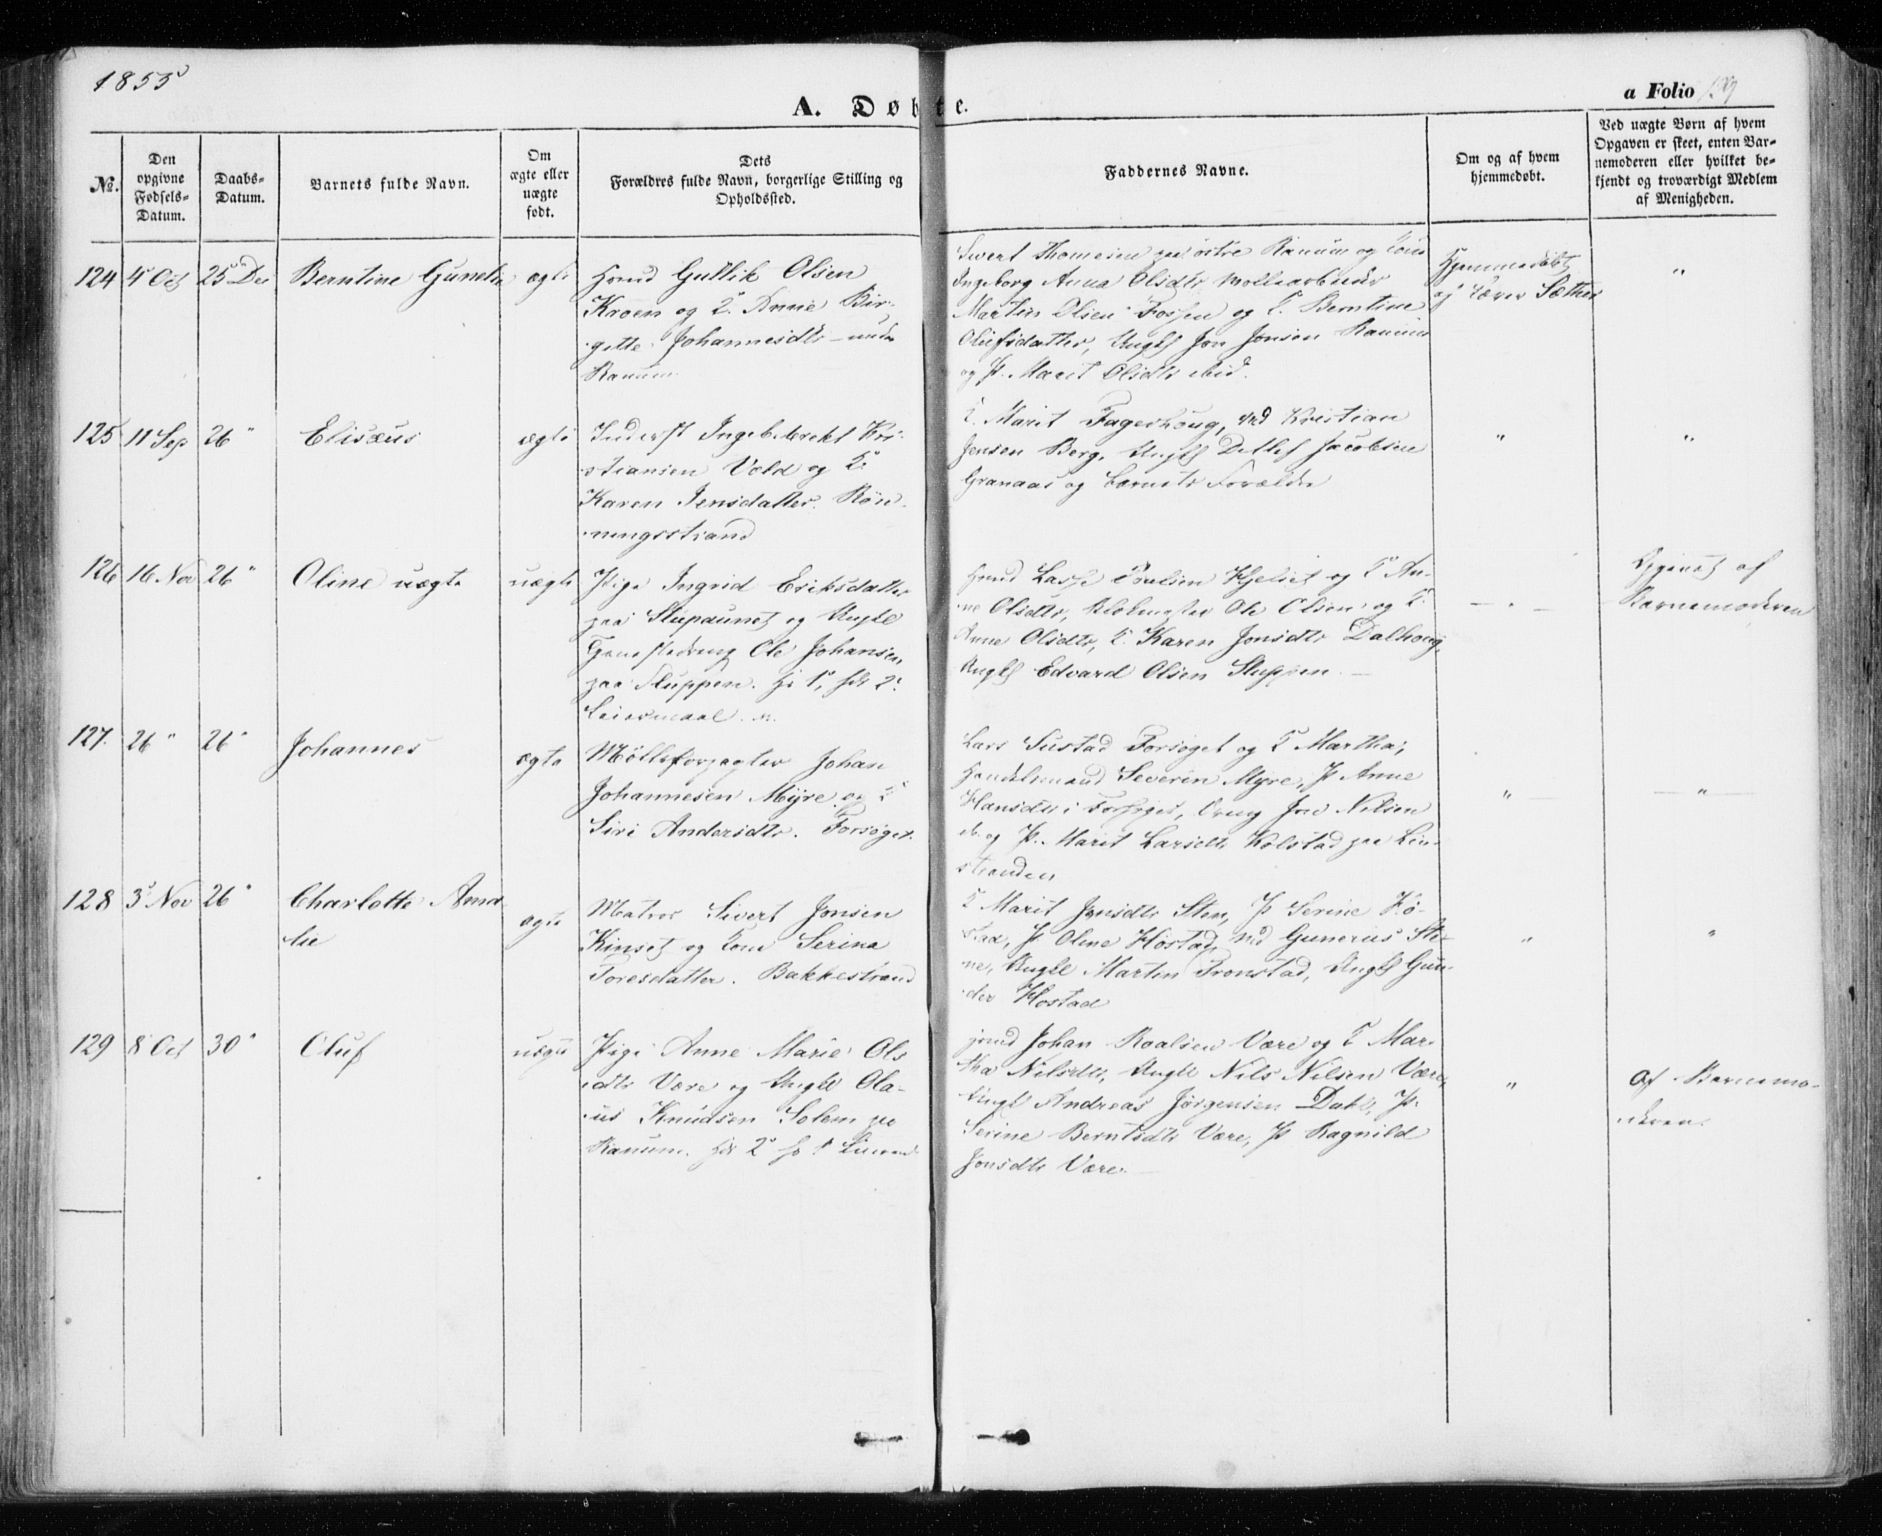 1855
A. Døbte.
a Folio 139
No.
Den opgivne Fødsels-Datum.
Daabs-Datum.
Barnets fulde Navn.
Om ægte eller uægte født.
Dets Forældres fulde Navn, borgerlige Stilling og Opholdssted.
Faddernes Navne.
Om og af hvem hjemmedøbt.
Ved uægte Børn af hvem Opgaven er skeet, enten Barnemoderen eller hvilket bekjendt og troværdigt Medlem af Menigheden.
124 4 Oct 25 Dec Berntine ægte
Gullik Olsen
Kroen og Anne Bir-
gitte Johannesdtr
Ranum
Sivert østre Ranum og
Ingeborg Anna Olsdtr,
Martin Olsen Fossen og Berntine
Olufsdatter, Ungk Jon Jonsen Ranum
og P. Marit Olsdtr ibid.
Hjemmedøbt
af Lærer Sæther
"
125 11 Sep 26 " Elisæus ægte
Inderst Ingebbrekt Kri-
stiansen Vold og K.
Karen Jensdatter. Røn-
ningsstrand
K. Marit Fageshoug, Kristian
Jensen Berg, Ungk Detlef Jacobsen
Granaas og Barnets Forældre
"
"
126 16 Nov 26 " Oline uægte uægte
Pige Ingrid Eriksdatter
paa Stupaunet og Ungkl
Ole Johansen
paa Sluppen. H. 1ste, 2.
Leiermaal.
Lasse og K. An-
ne Olsdtr, Ole Olsen og K.
Anne Olsdtr, K. Karen Jonsdtr Dalhoug,
Ungk Edvard Olsen Sluppen. —
— " —
Opgivet af
Barnemoderen
127. 26 " 26 " Johannes ægte
Mølleforpagter Johan
Johannesen Myre og K
Siri Andersdtr. Forsøget.
Lars Sustad Forsøget og K Martha,
Handelsmand Severin Myre, P Anne
Hansdtr i Forsøget, Jon Nilsen
og P. Marit Larsdtr Kolstad paa Lin-
stranden
" —
— " —
128 3 Nov 26 " Charlotte Ama-
lie
ægte
Matros Sivert Jonsen
Kinset og Kone Serina
Toresdatter. Bakkestrand
K Marit Jonsdtr Sten, P Serine Hø-
stad, P Oline Høstad, Gunerius Ste-
ne, Ungkl Martin Tronstad, Ungk Gun-
der Høstad
"
"
129 8 Oct 30 " Oluf uægte
Pige Anne Marie Ols-
dtr Være og Ungkl Ola-
us Knudsen Solem paa
Ranum.
Johan Roalsen Være og K Mar-
tha Nilsdtr, Ungkl Nils Nilsen Være,
Ungkl Andreas Jørgensen Dahl, P.
Serine Berntsdtr Være, P Ragnild
Jonsdtr Være. —
"
Af Barnemo-
deren.